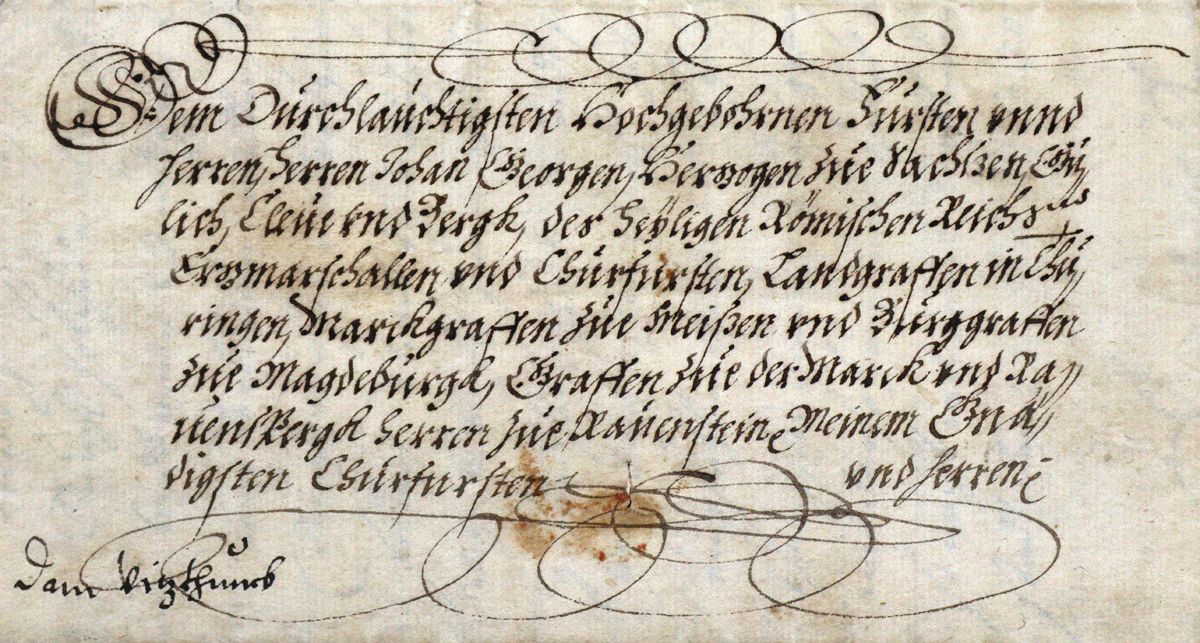 Dem Durchlauchtigsten Hochgebohrnen Fürsten unnd
Herren, Herren Johan Georgen, Hertzogen zue Sachßen, Gü,,
lich, Cleue vnd Bergk, des heyligen Römischen Reichs
Ertzmarschallen vnd Churfursten, Landgraffen in Thü,,
ringen, Marckgraffen zue Meißen vnd Burggraffen
zue Magdeburgk, Graffen zue der Marck vnd Ra,,
uenspergk Herren zue Rauenstein, Meinem Gnä,,
digsten Churfursten vnd Herren
Dam Vitzthumb